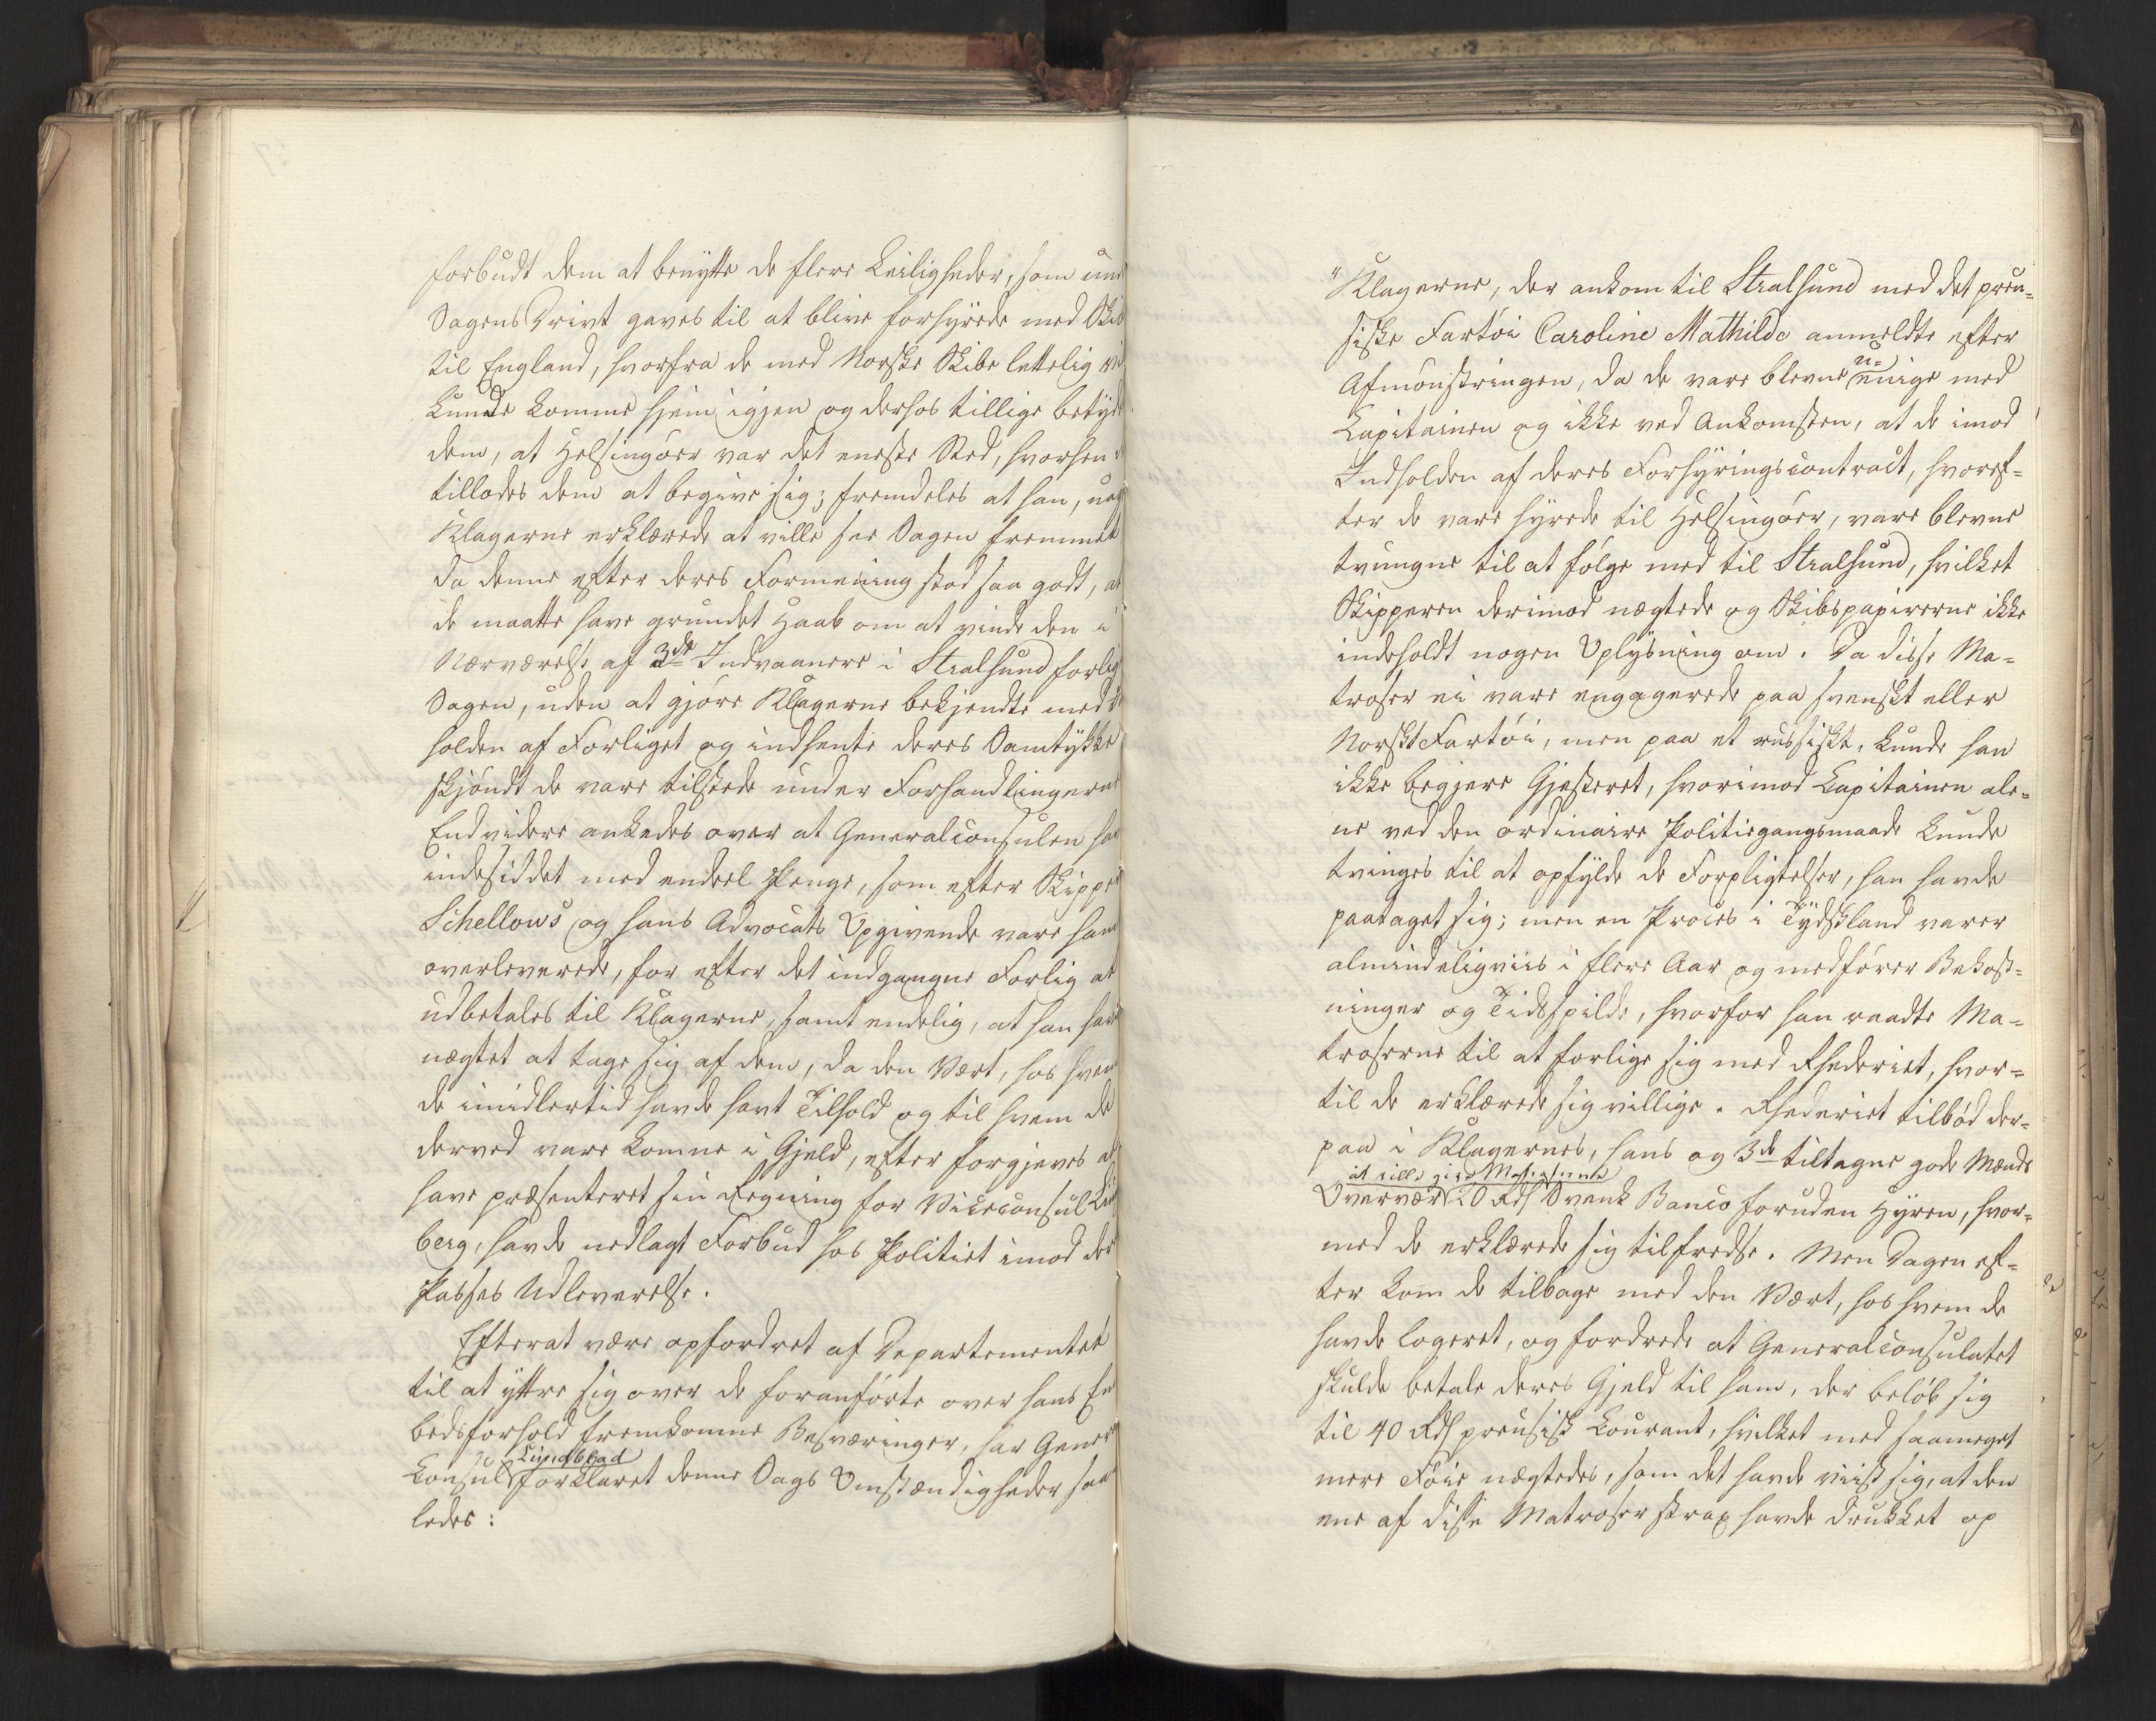 forbudt dem at benytte de flere Leiligheder, som und
Sagens Drivt gaves til at blive forhyrede med Skib
til England, hvorfra de med Norske Skibe lettelig vil
kunde komme hjem igjen og derhos tillige betyd
dem, at Helsingöer var det eneste Sted, hvorhen d
tillodes dem at begive sig; fremdeles at han, uag
Klagerne erklærede at ville see Sagen fremmet
da denne efter deres Formening stod saa godt, at
de maatte have grundet Haab om at vinde den i
Nærværelse af 3de Indvaanere i Stralsund forlig
Sagen, uden at gjöre Klagerne bekjendte med I
holden af Forliget og indhente deres Samtykke
skjöndt de vare tilstede under Forhandlingerne
End videre ankedes over at Generalconsulen hav
indesiddet med endeel Penge, som efter Skipper
Schellows og hans Advocats Opgivende vare ham
overleverede, for efter det indgangne Forlig at
udbetales til Klagerne, samt endelig, at han havd
nægtet at tage sig af dem, da den Vært, hos hvem
de imidlertid havde havt Tilhold og til hvem de
derved vare komne i Gjeld, efter forgjeves at
have præsenteret sin Regning for Viceconsul
berg, havde nedlagt Forbud hos Politiet imod der
Passes Udleverelse.
Efterat være opfordret af Departementet
til at yttre sig over de foranförte over hans Em
bedsforhold fremkomne Besværinger, har Gener
Consul Lundblad forklaret denne Sags Omstændigheder saa
ledes:
"Klagerne, der ankom til Stralsund med det preu-
siske Fartöi Caroline Mathilde anmeldte efter
Afmönstringen, da de vare blevne u- enige med
Capitainen og ikke ved Ankomsten, at de imod
Indholden af deres Forhyringscontract, hvoref-
ter de vare hyrede til Helsingöer, vare blevne
tvungne til at fölge med til Stralsund, hvilket
Skipperen derimod nægtede og Skibspapirerne ikke
indeholdt nogen Oplysning om. Da disse Ma-
troser ei vare engagerede paa svenskt eller
Norskt Fartöi, men paa et russiskt, kunde han
ikke begjere Gjesteret, hvorimod Capitainen ale-
ne ved den ordinaire Politiegangsmaade kunde
tvinges til at opfylde de Forpligtelser, han havde
paataget sig; men en Proces i Tydskland varer
almindeligviis i flere Aar og medförer Bekost-
ninger og Tidsspilde, hvorfor han raadte Ma-
troserne til at forlige sig med Rhederiet, hvor-
til de erklærede sig villige. Rhederiet tilböd der-
paa i Klagernes, hans og 3de tiltagne gode Mænds
Overvær at ville give Matroserne 20 Rdl Svensk Banco foruden Hyren, hvor-
med de erklærede sig tilfredse. Men Dagen ef-
ter kom de tilbage med den Vært, hos hvem de
havde logeret, og fordrede at Generalconsulatet
skulde betale deres Gjeld til ham, der belöb sig
til 40 Rdl preusisk Courant, hvilket med saameget
mere Föie nægtedes, som det havde viist sig, at den
ene af disse Matroser strax havde drukket op